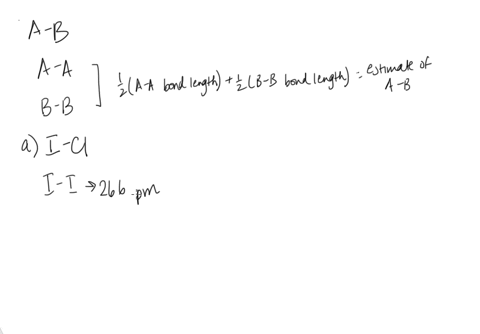 A-B
A-A
B-B
1/2 (A-A bond length) + 1/2 (B-B bond length) = estimate of A-B
a) I-Cl
I-I → 266 pm